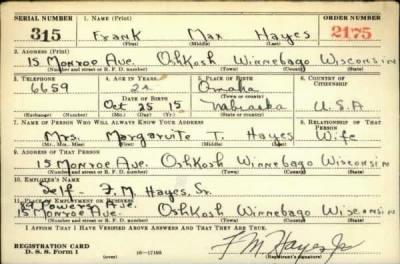 SERIAL NUMBER 1. NAME (Print) ORDER NUMBER
315 Frank Max Hayes 2175
(First) (Middle) (Last)
2. ADDRESS (Print)
15 Monroe Ave. Oshkosh Winnebago Wisconsin
(Number and street or R. F. D. number) (Town) (County) (State)
3. TELEPHONE 4. AGE IN YEARS 5. PLACE OF BIRTH 6. COUNTRY OF CITIZENSHIP
6659 Omaha
DATE OF BIRTH (Town or county)
Oct 25 15 Nebraska U.S.A
(Exchange) (Number) (Mo.) (Day) (Yr.) (State or country)
7. NAME OF PERSON WHO WILL ALWAYS KNOW YOUR ADDRESS 8. RELATIONSHIP OF THAT PERSON
Mrs. Margaruite T. Hayes Wife
(Mr., Mrs., Miss) (First) (Middle) (Last)
9. ADDRESS OF THAT PERSON
15 Monroe Ave. Oshkosh Winnebago Wisconsin
(Number and street or R. F. D. number) (Town) (County) (State)
10. EMPLOYER'S NAME
Self - F.M. Hayes, Sr.
11. PLACE OF EMPLOYMENT OR BUSINESS
Powers Ave.
15 Monroe Ave. Oshkosh Winnebago Wisconsin
(Number and street or R. F. D. number) (Town) (County) (State)
I AFFIRM THAT I HAVE VERIFIED ABOVE ANSWERS AND THAT THEY ARE TRUE.
REGISTRATION CARD
D. S. S. Form 1 (over) 16-17105 F M Hayes Jr
(Registrant's signature)